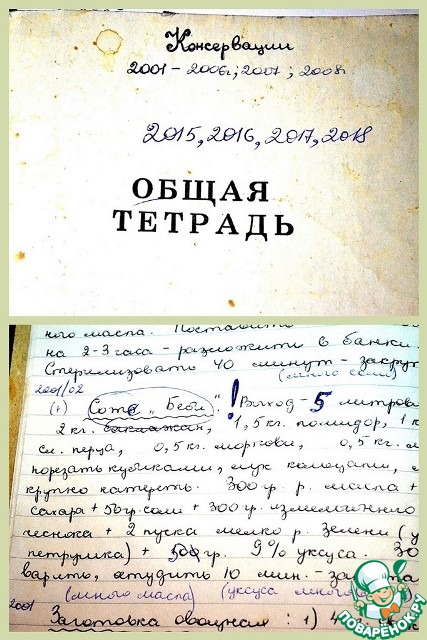 Консервации
2001 – 2006г.; 2007; 2008г.
2015, 2016, 2017, 2018
ОБЩАЯ
ТЕТРАДЬ
ного масла. Поставить
на 2-3 часа – разложить в банки.
Стерилизовать 40 минут – закрут
(много соли)
2001/02
(+) Соте „Беби". ! Выход – 5 литров
2 кг. баклажан, 1,5 кг. помидор, 1 к
сл. перца, 0,5 кг. моркови, 0,5 кг.
порезать кубиками, лук кольцами,
крупно натереть. 300 гр. р. масла +
сахара + 50 гр. соли + 300 гр. измельчённого
чеснока + 2 пуска мелко р. зелени (у
петрушка) + 500 гр. 9% уксуса. 30
варить, остудить 10 мин. – за
(много масла) (уксуса много
2001 Заготовка овощная : 1) 4
ПОВАРЁНОК.РУ